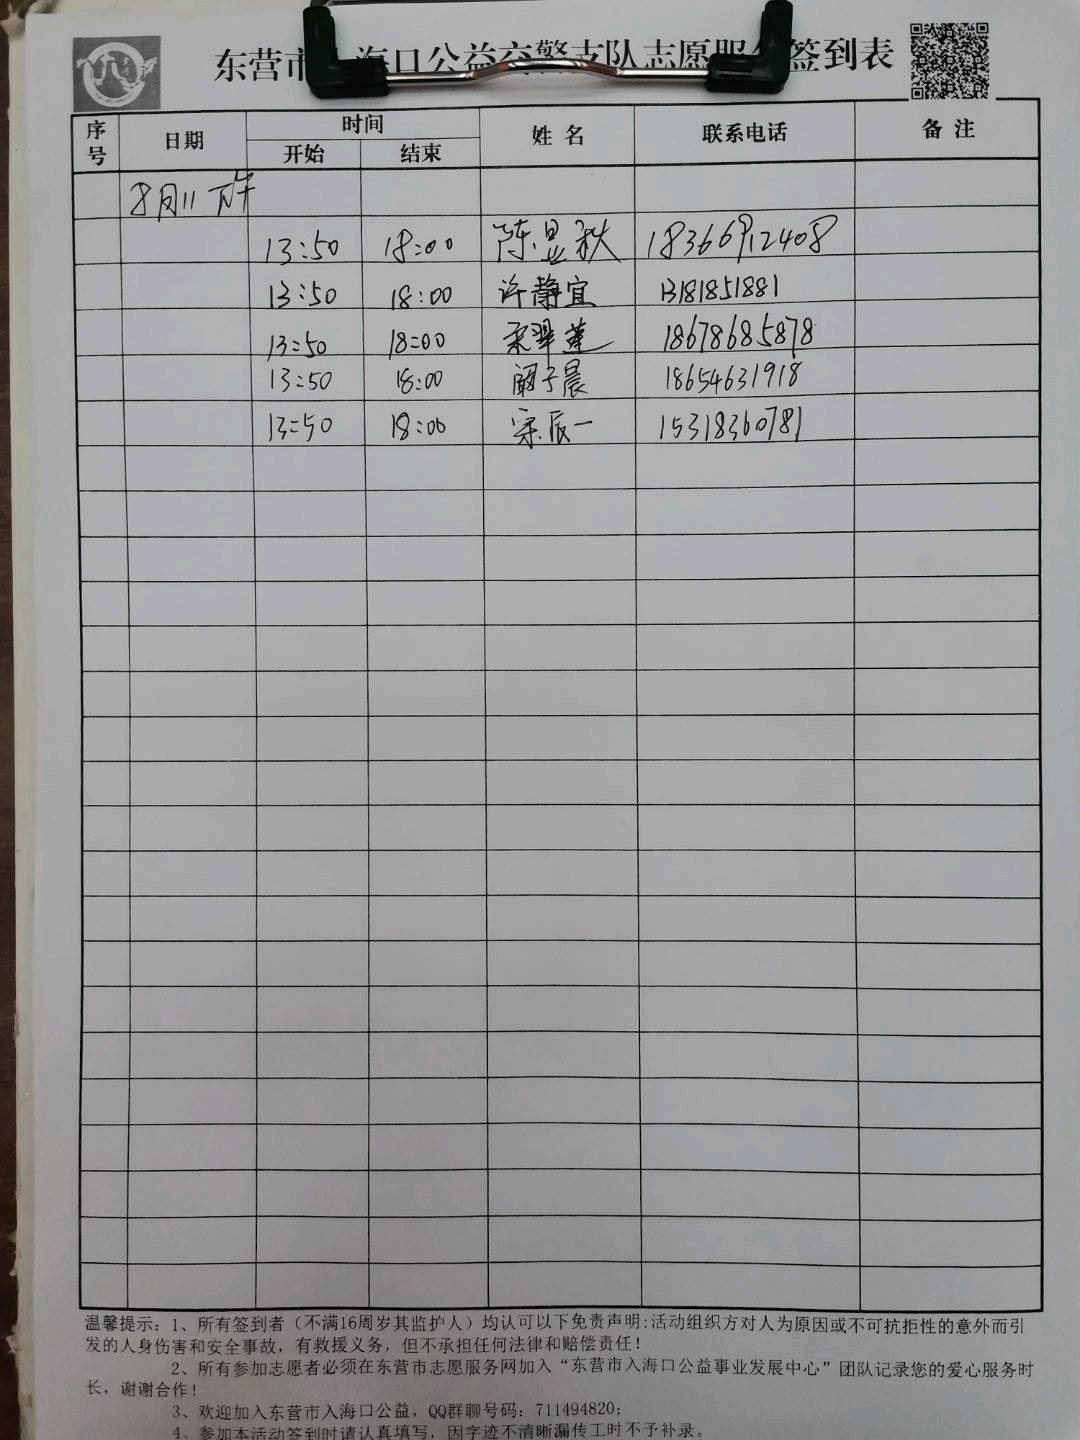 东营市入海口公益交警支队志愿服务签到表
序号 日期 时间 姓名 联系电话 备注
开始 结束
8月11 下午
13:50 18:00 陈显秋 18366912408
13:50 18:00 许静宜 13181851881
13:50 18:00 翠莲 18678685878
13:50 18:00 子晨 18654631918
13:50 18:00 宗辰一 15318360781
温馨提示：1、所有签到者（不满16周岁其监护人）均认可以下免责声明:活动组织方对人为原因或不可抗拒性的意外而引
发的人身伤害和安全事故，有救援义务，但不承担任何法律和赔偿责任！
2、所有参加志愿者必须在东营市志愿服务网加入“东营市入海口公益事业发展中心”团队记录您的爱心服务时
长，谢谢合作！
3、欢迎加入东营市入海口公益，QQ群聊号码：711494820；
4、参加本活动签到时请认真填写，因字迹不清晰漏传工时不予补录。